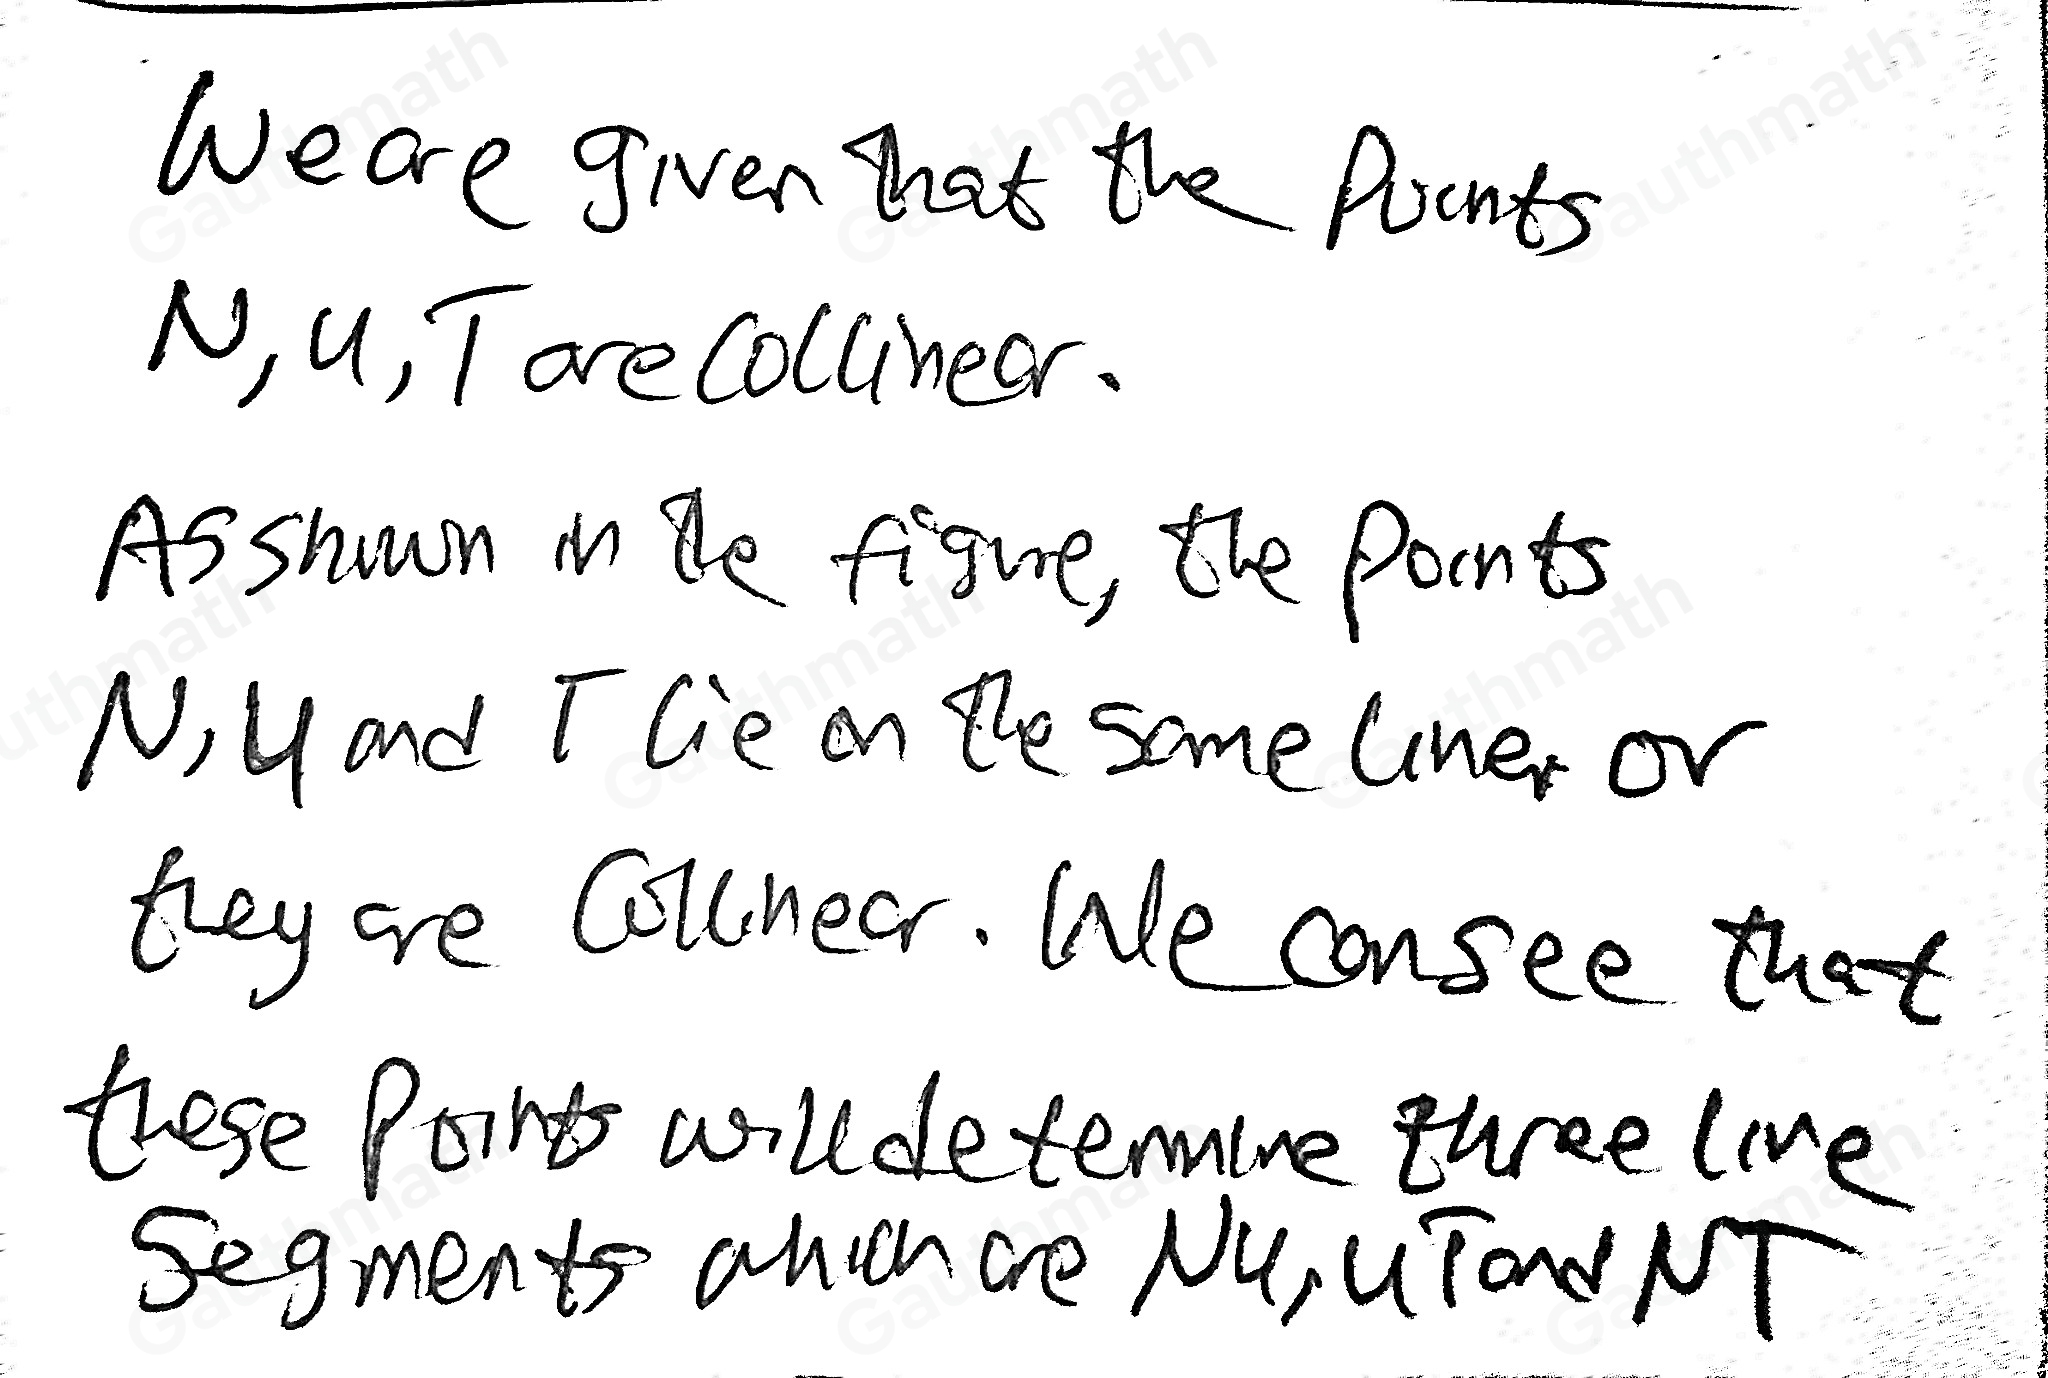 We are given that the Points
N, U, T are Collinear.
As shown in the figure, the points
N, U and T lie on the same line, or
they are Collinear. We can see that
these Points will determine three line
Segments which are NU, UT and NT